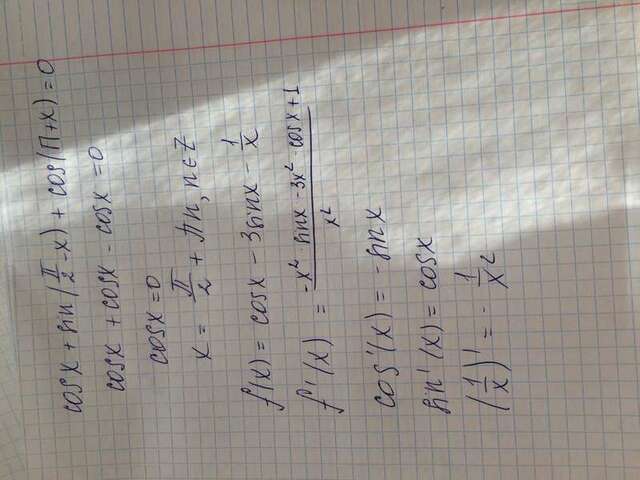 cosx + sin(π/2 - x) + cos(π+x) = 0
cosx + cosx - cosx = 0
cosx = 0
x = π/2 + πn, n ∈ Z
f(x) = cosx - 3sinx - 1/x
f'(x) = (-x² · sinx - 3x² · cosx + 1)/x²
cos'(x) = -sinx
sin'(x) = cosx
(1/x)' = - 1/x²